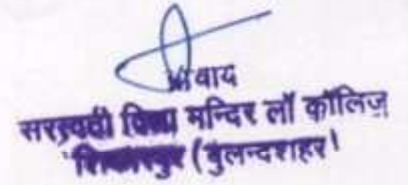 सरस्वती विद्या मन्दिर लॉ कॉलिज
शिकारपुर (बुलन्दशहर)